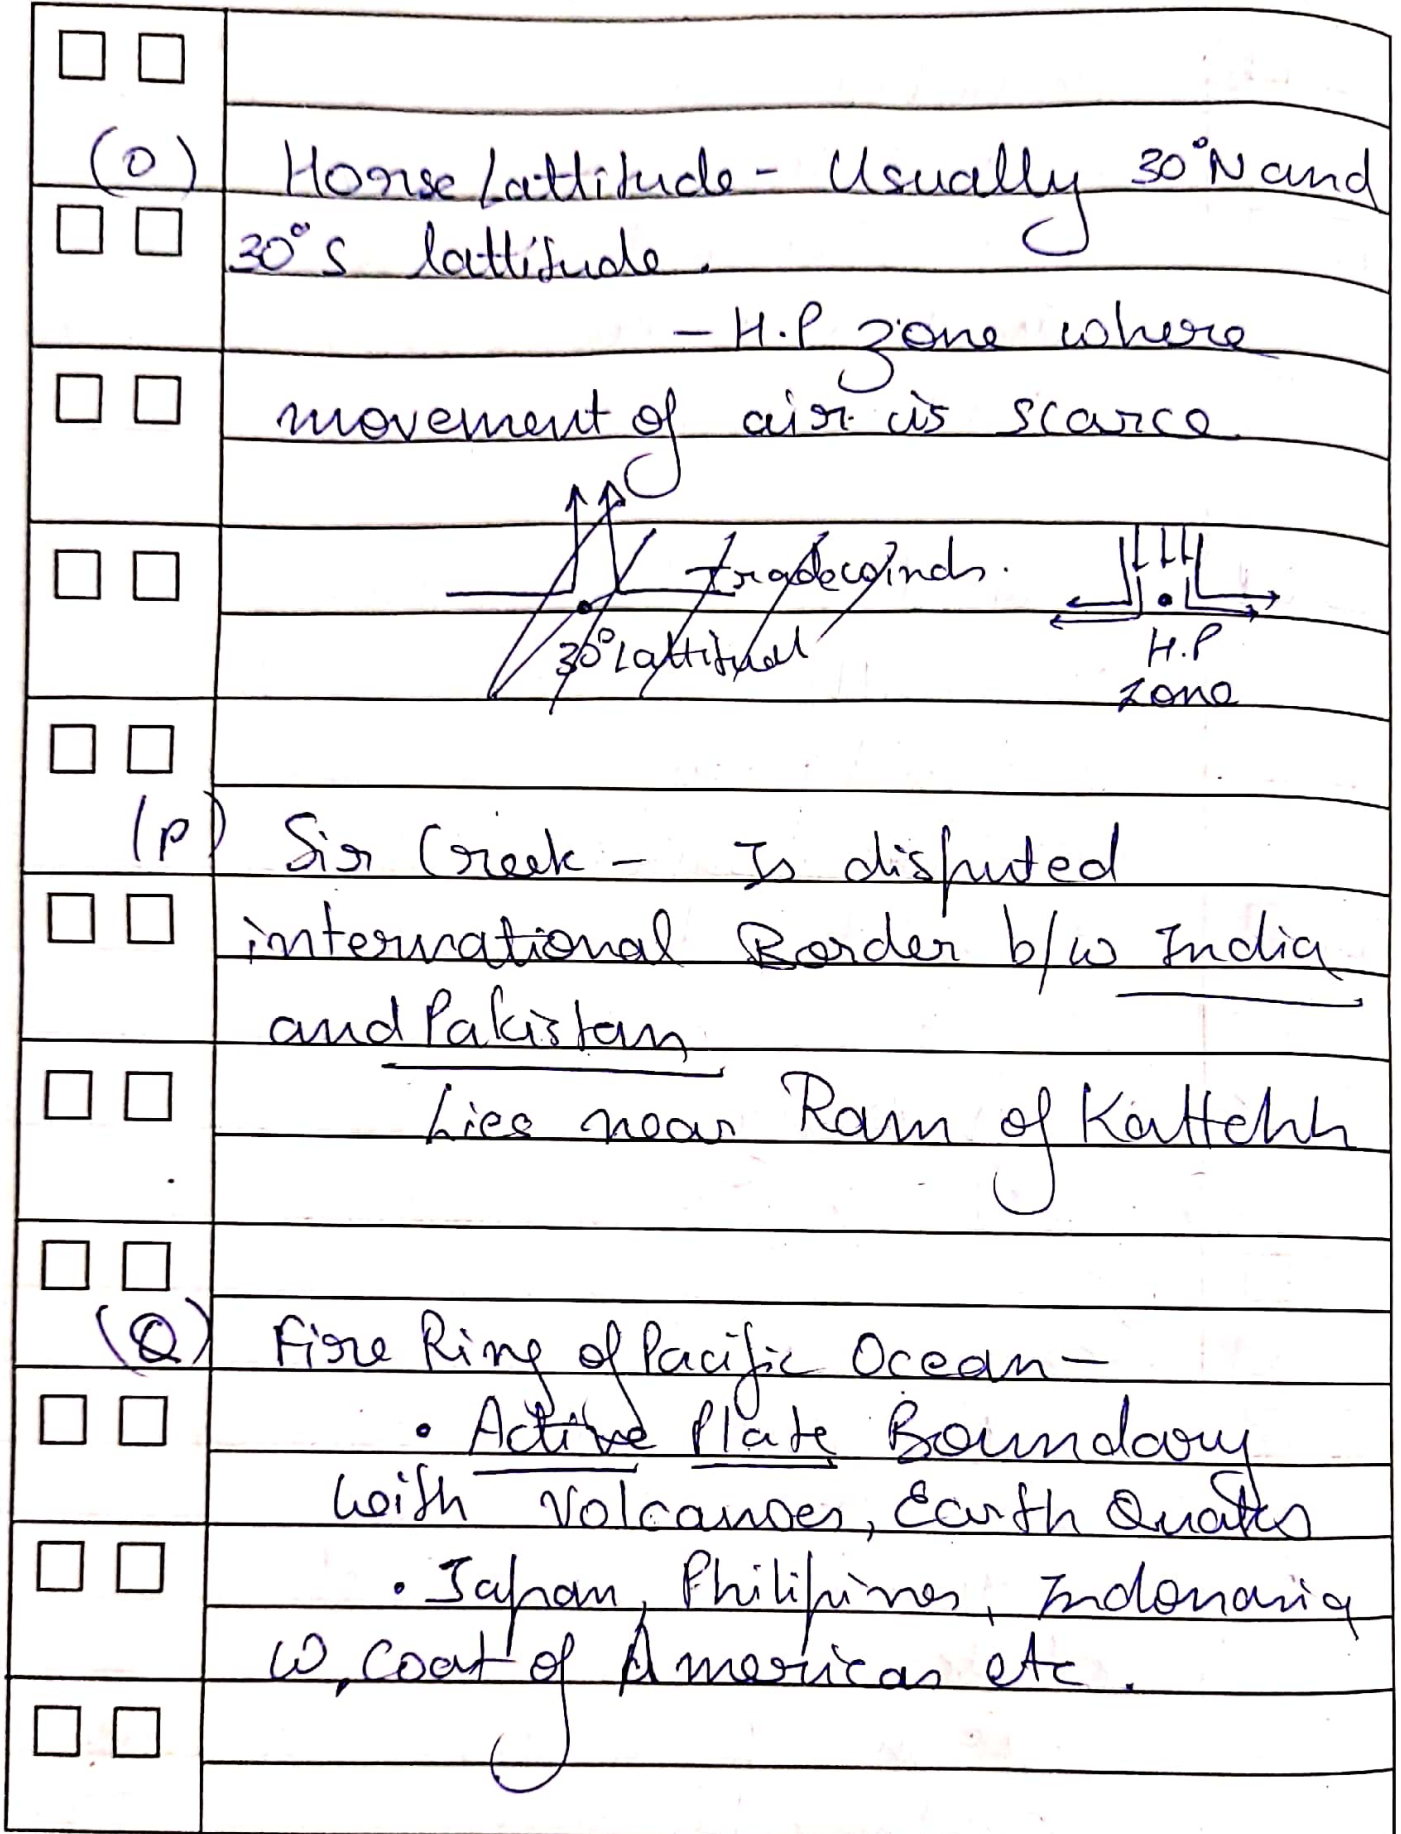 (O) Horse Lattitude - Usually 30°N and
30°S lattitude.
- H.P zone where
movement of air is scarce
tradewinds.
30° lattitud
H.P
zone
(P) Sir Creek - Is disputed
international Border b/w India
and Pakistan
Lies near Rann of Kattchh
(Q) Fire Ring of Pacific Ocean -
• Active Plate Boundary
with Volcanoes, Earth Quakes
• Japan, Philipines, Indonasia
W, Coat of Americas etc.